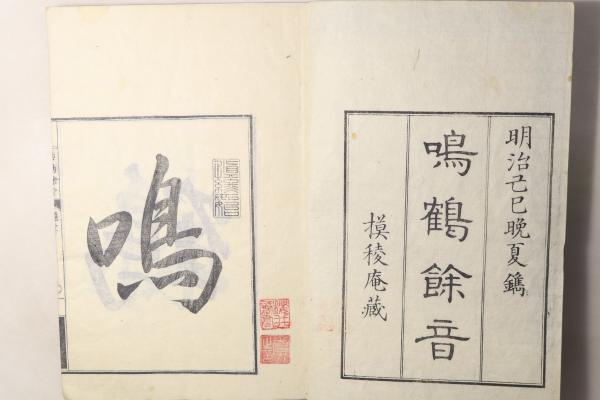 明治己巳晩夏鐫
鳴鶴餘音
模稜庵藏
鳴